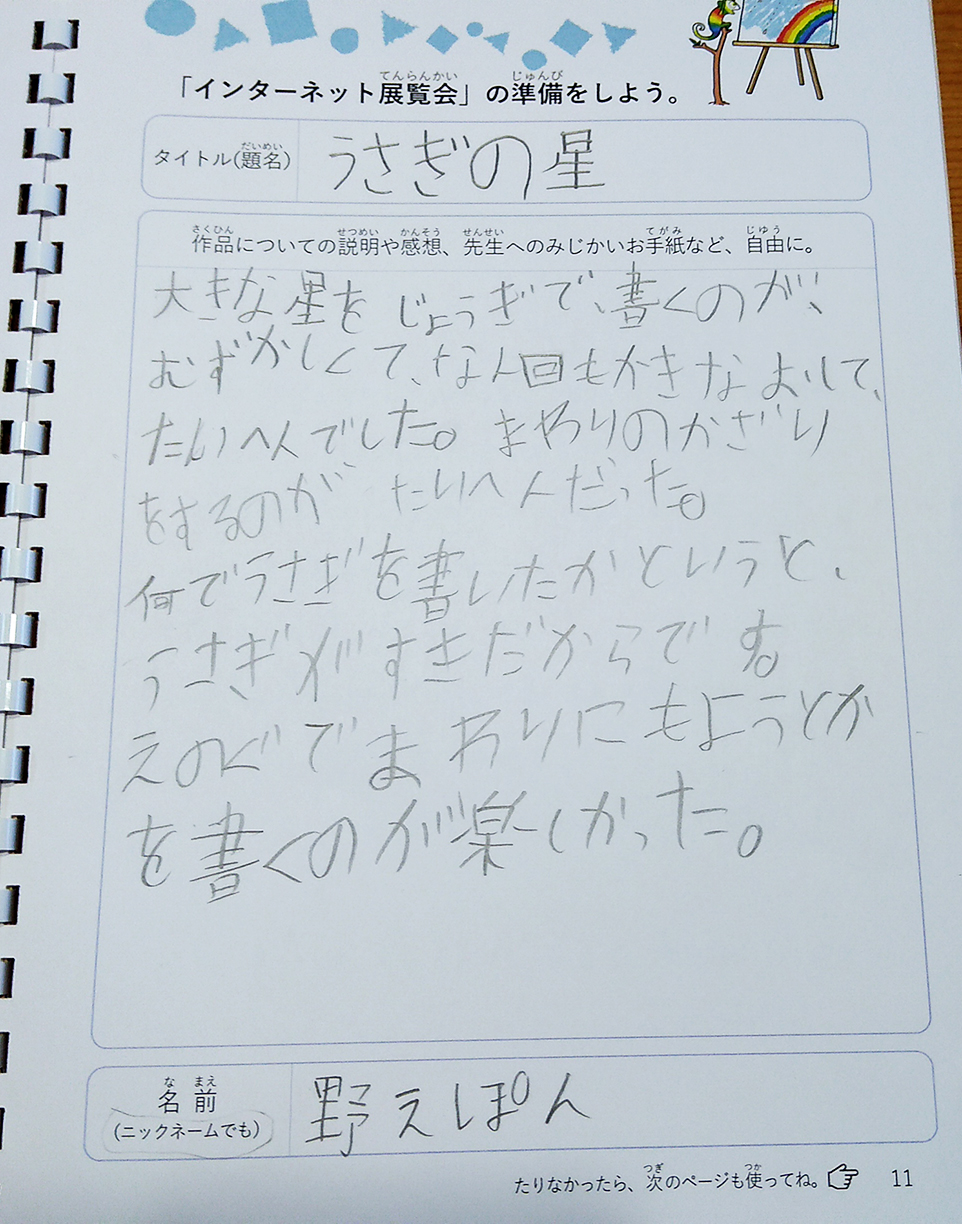 「インターネット展覧会」の準備をしよう。
タイトル(題名)
うさぎの星
作品についての説明や感想、先生へのみじかいお手紙など、自由に。
大きな星を じょうぎで、書くのが、
むずかしくて、なん回もかきなよして、
たいへんでした。まわりのかざり
をするのが たいへんだった。
何でうさぎを書いたかというと、
うさぎがすきだからです。
えのぐでまわりにもようとか
を書くのが楽しかった。
名前
(ニックネームでも)
野えぽん
たりなかったら、次のページも使ってね。 11